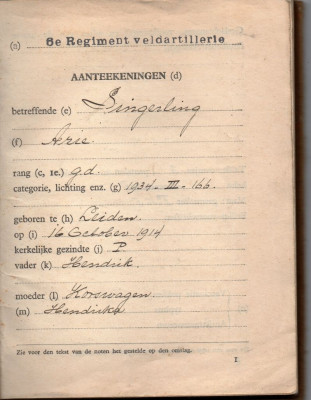 (a) 6e Regiment veldartillerie
AANTEEKENINGEN (d)
betreffende (e) Singerling
(f) Arie
rang (c, 1e.) g.d.
categorie, lichting enz. (g) 1934 - III - 166.
geboren te (h) Leiden.
op (i) 16 October 1914
kerkelijke gezindte (j) P
vader (k) Hendrik.
moeder (l) Horswagen
(m) Hendrika
Zie voor den tekst van de noten het gestelde op den omslag.
1